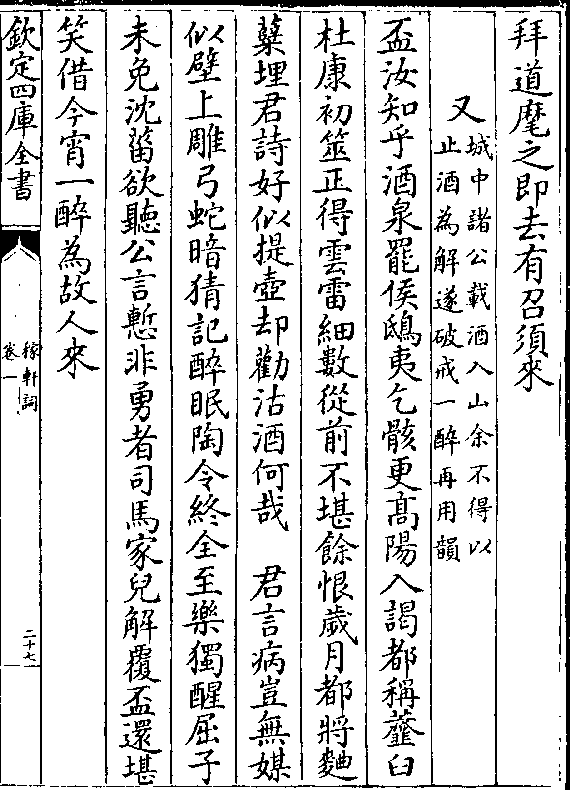 拜道麾之即去有召須來
又城中諸公載酒入山余不得以
止酒為解遂破戒一醉再用韻
盃汝知乎酒泉罷侯鴟夷乞骸更髙陽入謁都稱虀臼
杜康初筮正得雲雷細數從前不堪餘恨歲月都將麯
糵埋君詩好似提壺却勸沽酒何哉　君言病豈無媒
似壁上雕弓蛇暗猜記醉眠陶令終全至樂獨醒屈子
未免沈菑欲聽公言慙非勇者司馬家兒解覆盃還堪
笑借今宵一醉為故人來
欽定四庫全書
稼軒詞
卷一
二十七